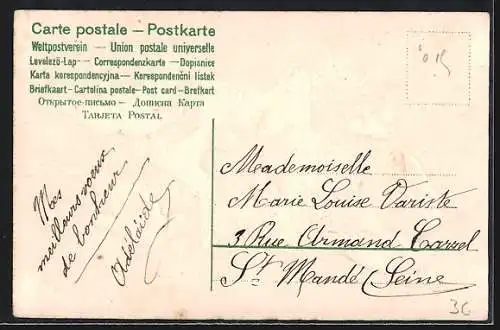 Carte postale — Postkarte
Weltpostverein — Union postale universelle
Levelező-Lap — Correspondenzkarte — Dopisnice
Karta korespondencyjna — Korespondenční lístek
Briefkaart — Cartolina postale — Post card — Brefkort
Открытое-письмо — Дописна Карта
TARJETA POSTAL
Mes
meilleurs voeux
de bonheur
Adélaïde
Meademoiselle
Marie Louise Variste
3 Rue Armand Carrel
St Mandé (Seine